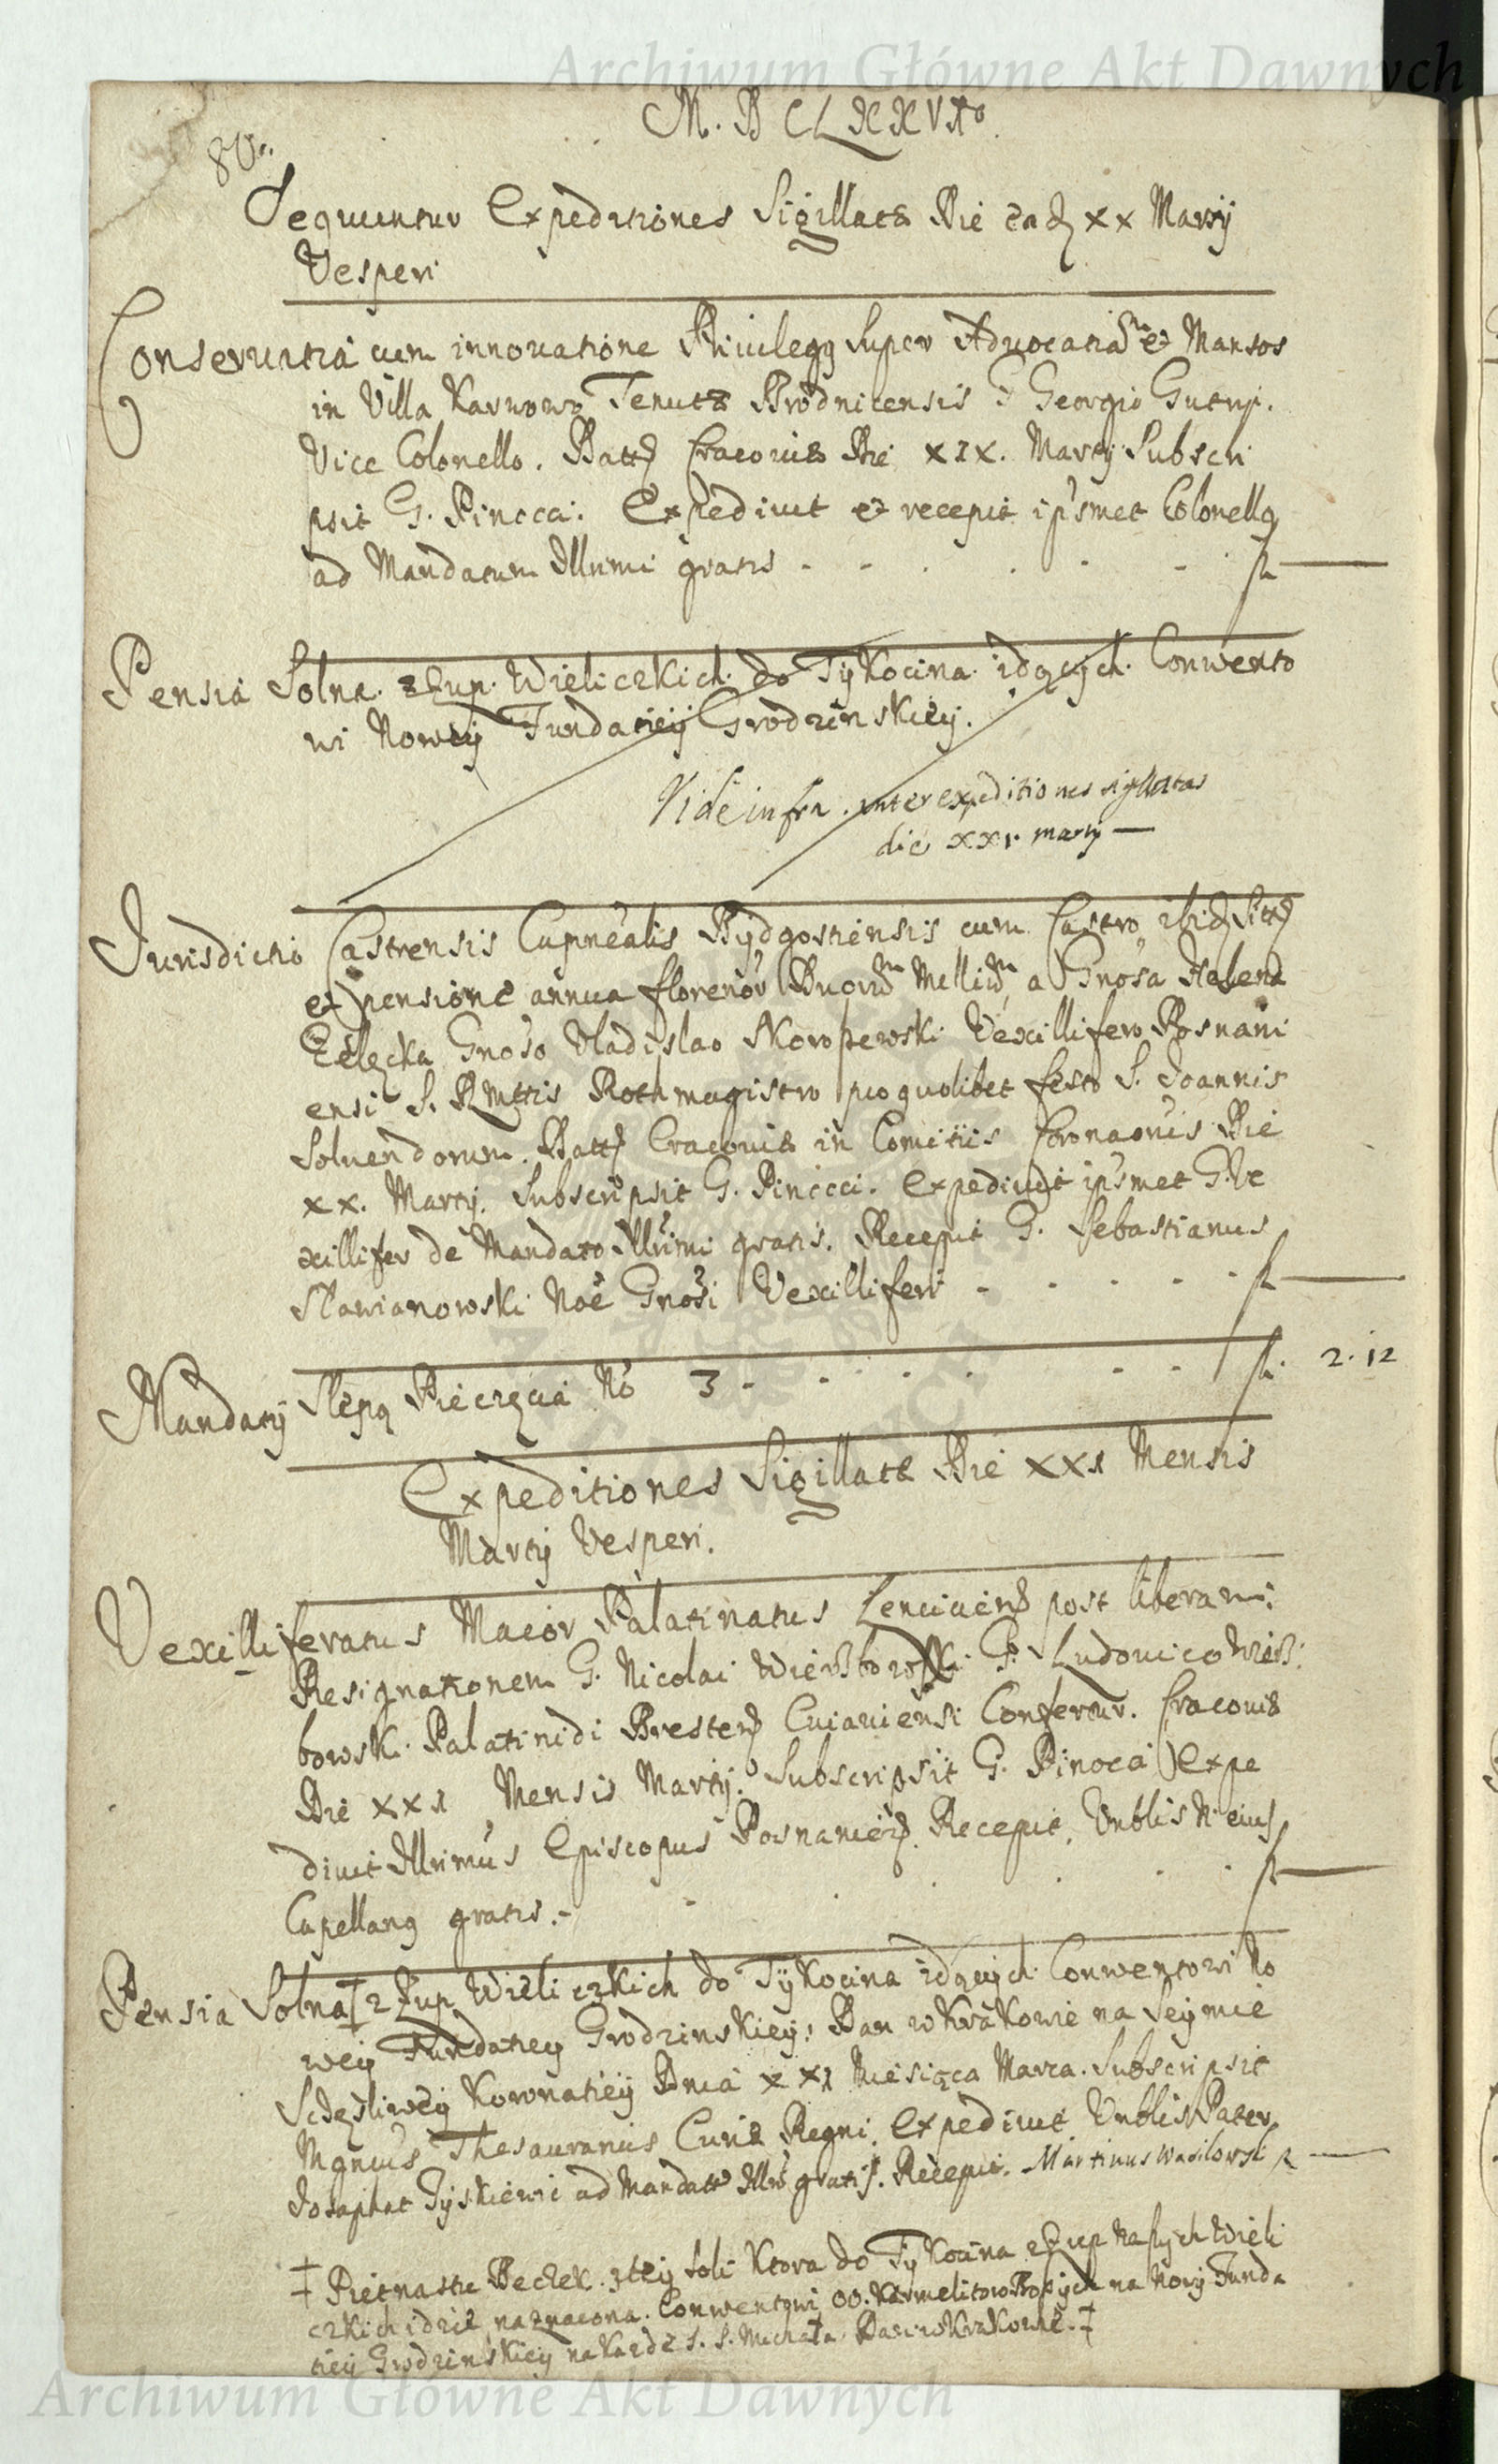 Archiwum Główne Akt Dawnych
M. D C L X X V Ito.
80.
Sequuntur Expeditiones Sigillatæ Die eadem xx Martij
Vesperi
Conservatia cum innovatione Privilegij super Advocatiam et Mansos
in Villa Karwowo Tenutæ Brodnicensis G Georgio
Vice Colonello. Datt Cracoviæ Die XIX. Martij Subscri
psit G. Pinocci. Expedivit et recepit ipsmet Colonellus
ad Mandatum Illrimi gratis - - . . . - fl —
Pensia Solna. z Zup. Wieliczkich. do Tykocina. idących. Conwento
wi Nowey Fundatieij Grodzinskiey.
Vide infra. inter expeditiones sigillatas
die XXI. martij —
Jurisdictio Castrensis Capnealis Bydgostiensis cum Castro ibid
et pensione annua florenor Duorum Millium a Gnosa Helena
Gnoso Vladislao Skoroszewski Vexillifero Posnani
ensi S. R Mttis Rothmagistro pro quolibet festo S. Joannis
Solvendorum. Datt Cracoviæ in Comitiis Coronaonis Die
xx. Martij. Subscripsit G. Pinocci. Expedivit ipsmet G. Ve
xillifer de Mandato Illrimi gratis. Recepit G. Sebastianus
Sławianowski Noe Gnosi Vexilliferi - . . . . . fl —
Mandaty Slepą Pieczęcia No 3 - . . . - - fl. 2. 12
Expeditiones Sigillatæ Die XXI Mensis
Martij Vesperi.
Vexilliferatus Maior Palatinatus Lencicien post liberam
Resignationem G. Nicolai Wierzbowski G. Ludovico Wierz
bowski Palatinidi Bresten Cuiaviensi Confertur. Cracoviæ
Die XXI Mensis Martij. Subscripsit G. Pinocci Expe
divit Illrimus Episcopus Posnanien. Recepit. Vnblis N. eius
Capellanus gratis. - - . . . . fl —
Pensia Solna ‡ z Zup Wieliczkich do Tykocina idących Conwentowi No
wey Fundatiey Grodzinskiey. Dan w Krakowie na Seymie
Sczęsliwey Koronatieij Dnia XXI Miesiąca Marca. Subscripsit
Mgnius Thesaurarius Curiæ Regni. Expedivit Vnblis Pater
Josaphat Tyskiewic ad Mandatt Illri gratis. Recepit. Martinus Wasilowski fl —
‡ Pietnastu Beczek z tey Soli Ktora do Tykocina z Zup Naszych Wieli
czkich idzie naznaczona. Conwentowi OO. Karmelitow Bosych na Nowy Funda
tiey Grodzinskiey na kazde S. S. Michała Dan w Krakowie. ‡
Archiwum Główne Akt Dawnych